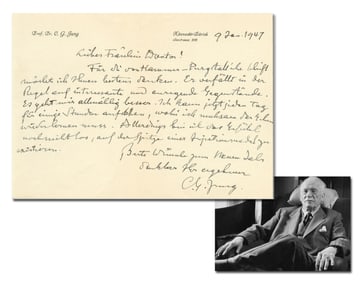 Prof. Dr. C. G. Jung
Küsnacht-Zürich
Seestrasse 228
9 Jan. 1947
Liebes Fräulein Doctor!
Für die
möchte ich Ihnen bestens danken. Es
Regel auf interessante und anregende Gegenstände.
Es geht mir allmählig besser. Ich kann jetzt jeden Tag
für einige Stunden aufstehen, wobei ich das Gehen
wieder lernen muss. Allerdings bin ich das Gefühl
noch nicht los, auf der Spitze einer Injectionsnadel zu
existieren.
Beste Wünsche zum Neuen Jahr
Ihr ergebener
C. G. Jung.